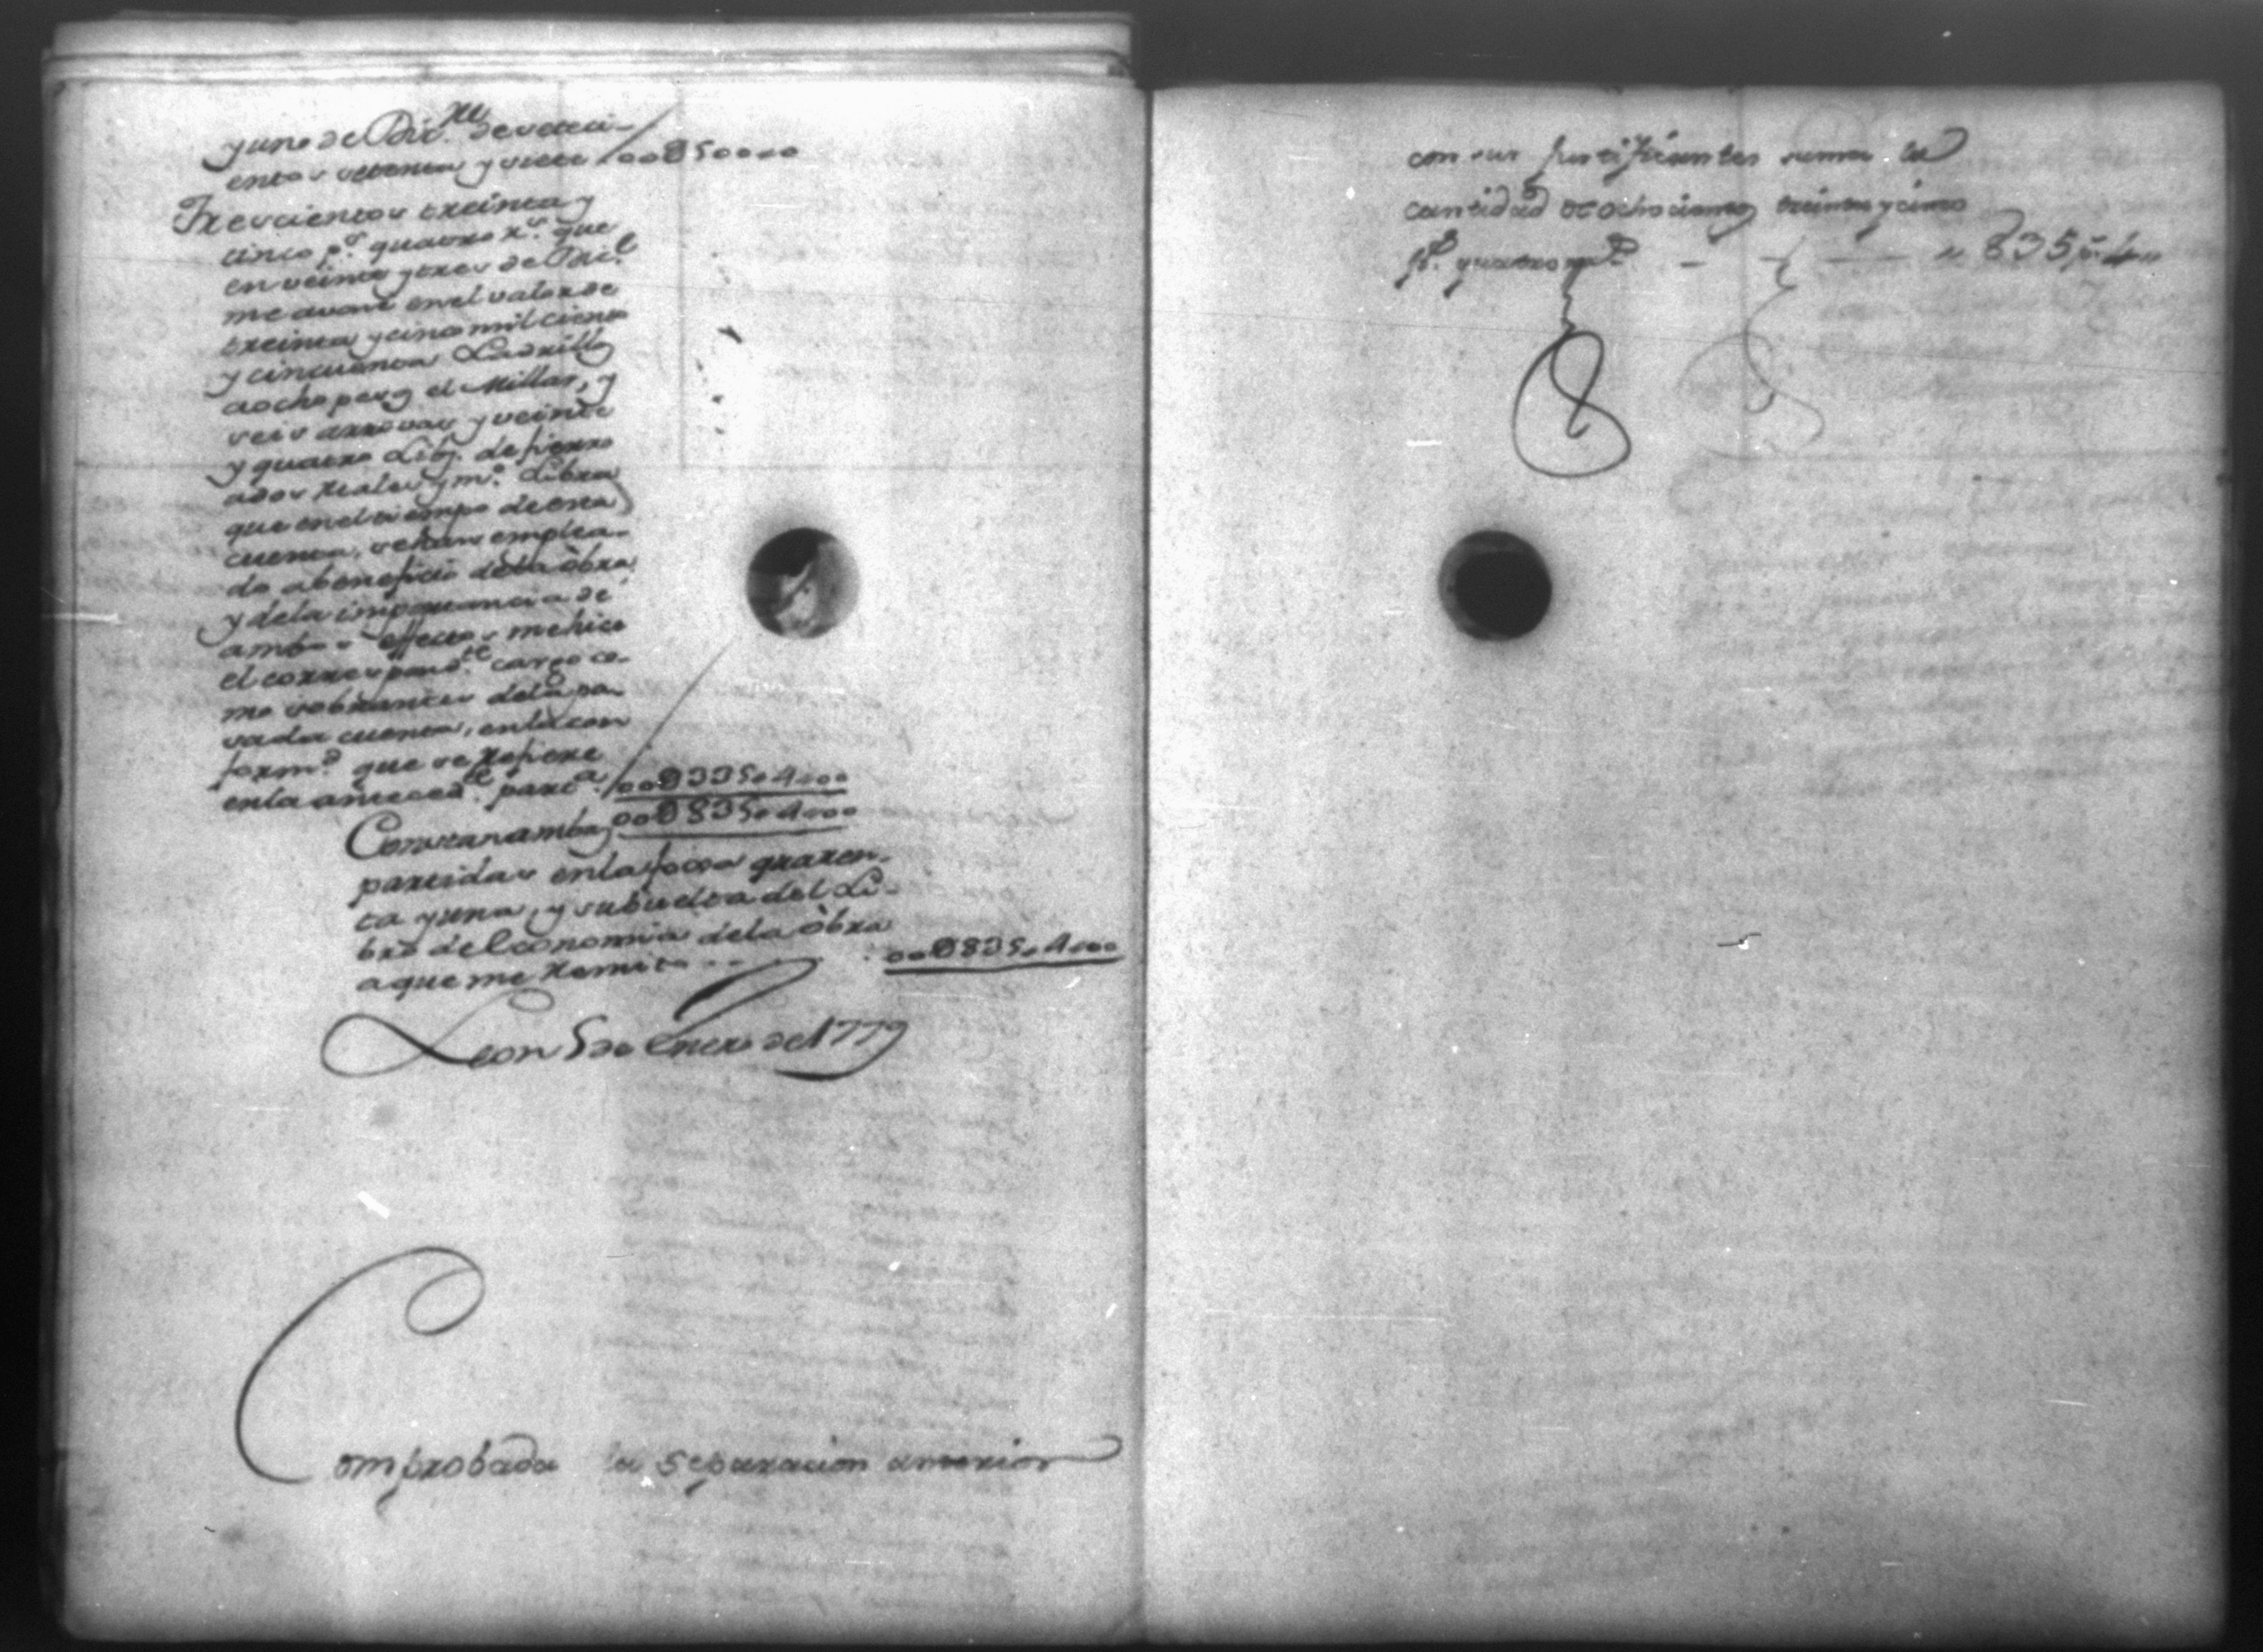 y uno de Dic.re de seteci-
entos setenta y siete / 00850000
Trescientos treinta y
cinco p.s quatro r.s que
en veinte y tres de Dic.e
me avoné en el valor de
treinta y cinco mil ciento
y cincuenta Ladrillos
a ocho pesos el Millar, y
seis arrovas y veinte
y quatro Lib.s de fierro
a dos reales y m.o Libra
que en el tiempo de esta
cuenta, se han emplea-
do a beneficio de la òbra
y de la importancia de
ambos effectos me hice
el correspond.te cargo co-
mo sobrantes de la pa-
sada cuenta, en la con
form.d que se refiere
en la anteced.te part.a / 000335„4„000
Constan ambas 000835„4„000
partidas en la foxa quaren-
ta y una, y subuelta del Li-
bro de Economia de la òbra
a que me remito - - - 000835„4„000
Leon 5 de Enero de 1779
Comprobada la separacion anterior
con sus justificantes suma la
cantidad de ochocientos treinta y cinco
p.s quatro r.s — — „ 835 p.s 4 „